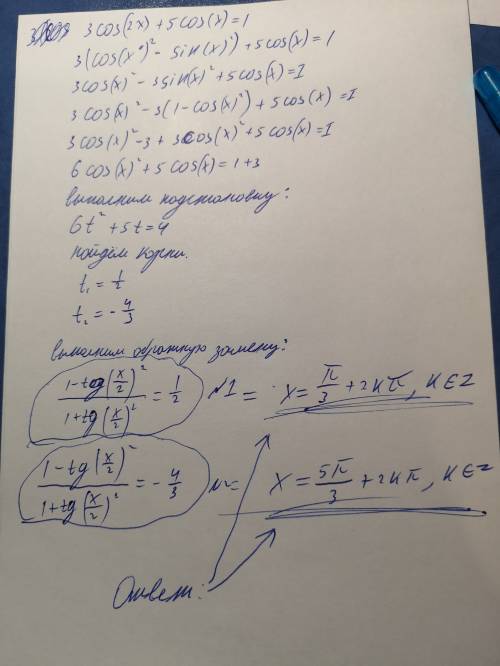 3cos(2x)+5cos(x)=1
3(cos(x)²-sin(x)²)+5cos(x)=1
3cos(x)²-3sin(x)²+5cos(x)=1
3cos(x)²-3(1-cos(x)²)+5cos(x)=1
3cos(x)²-3+3cos(x)²+5cos(x)=1
6cos(x)²+5cos(x)=1+3
Выполним подстановку:
6t²+5t=4
найдём корни.
t₁=1/2
t₂=-4/3
выполним обратную замену:
(1-tg(x/2)²)/(1+tg(x/2)²)=1/2 №1= x=π/3+2kπ, k∈Z
(1-tg(x/2)²)/(1+tg(x/2)²)=-4/3 №2= x=5π/3+2kπ, k∈Z
Ответ: